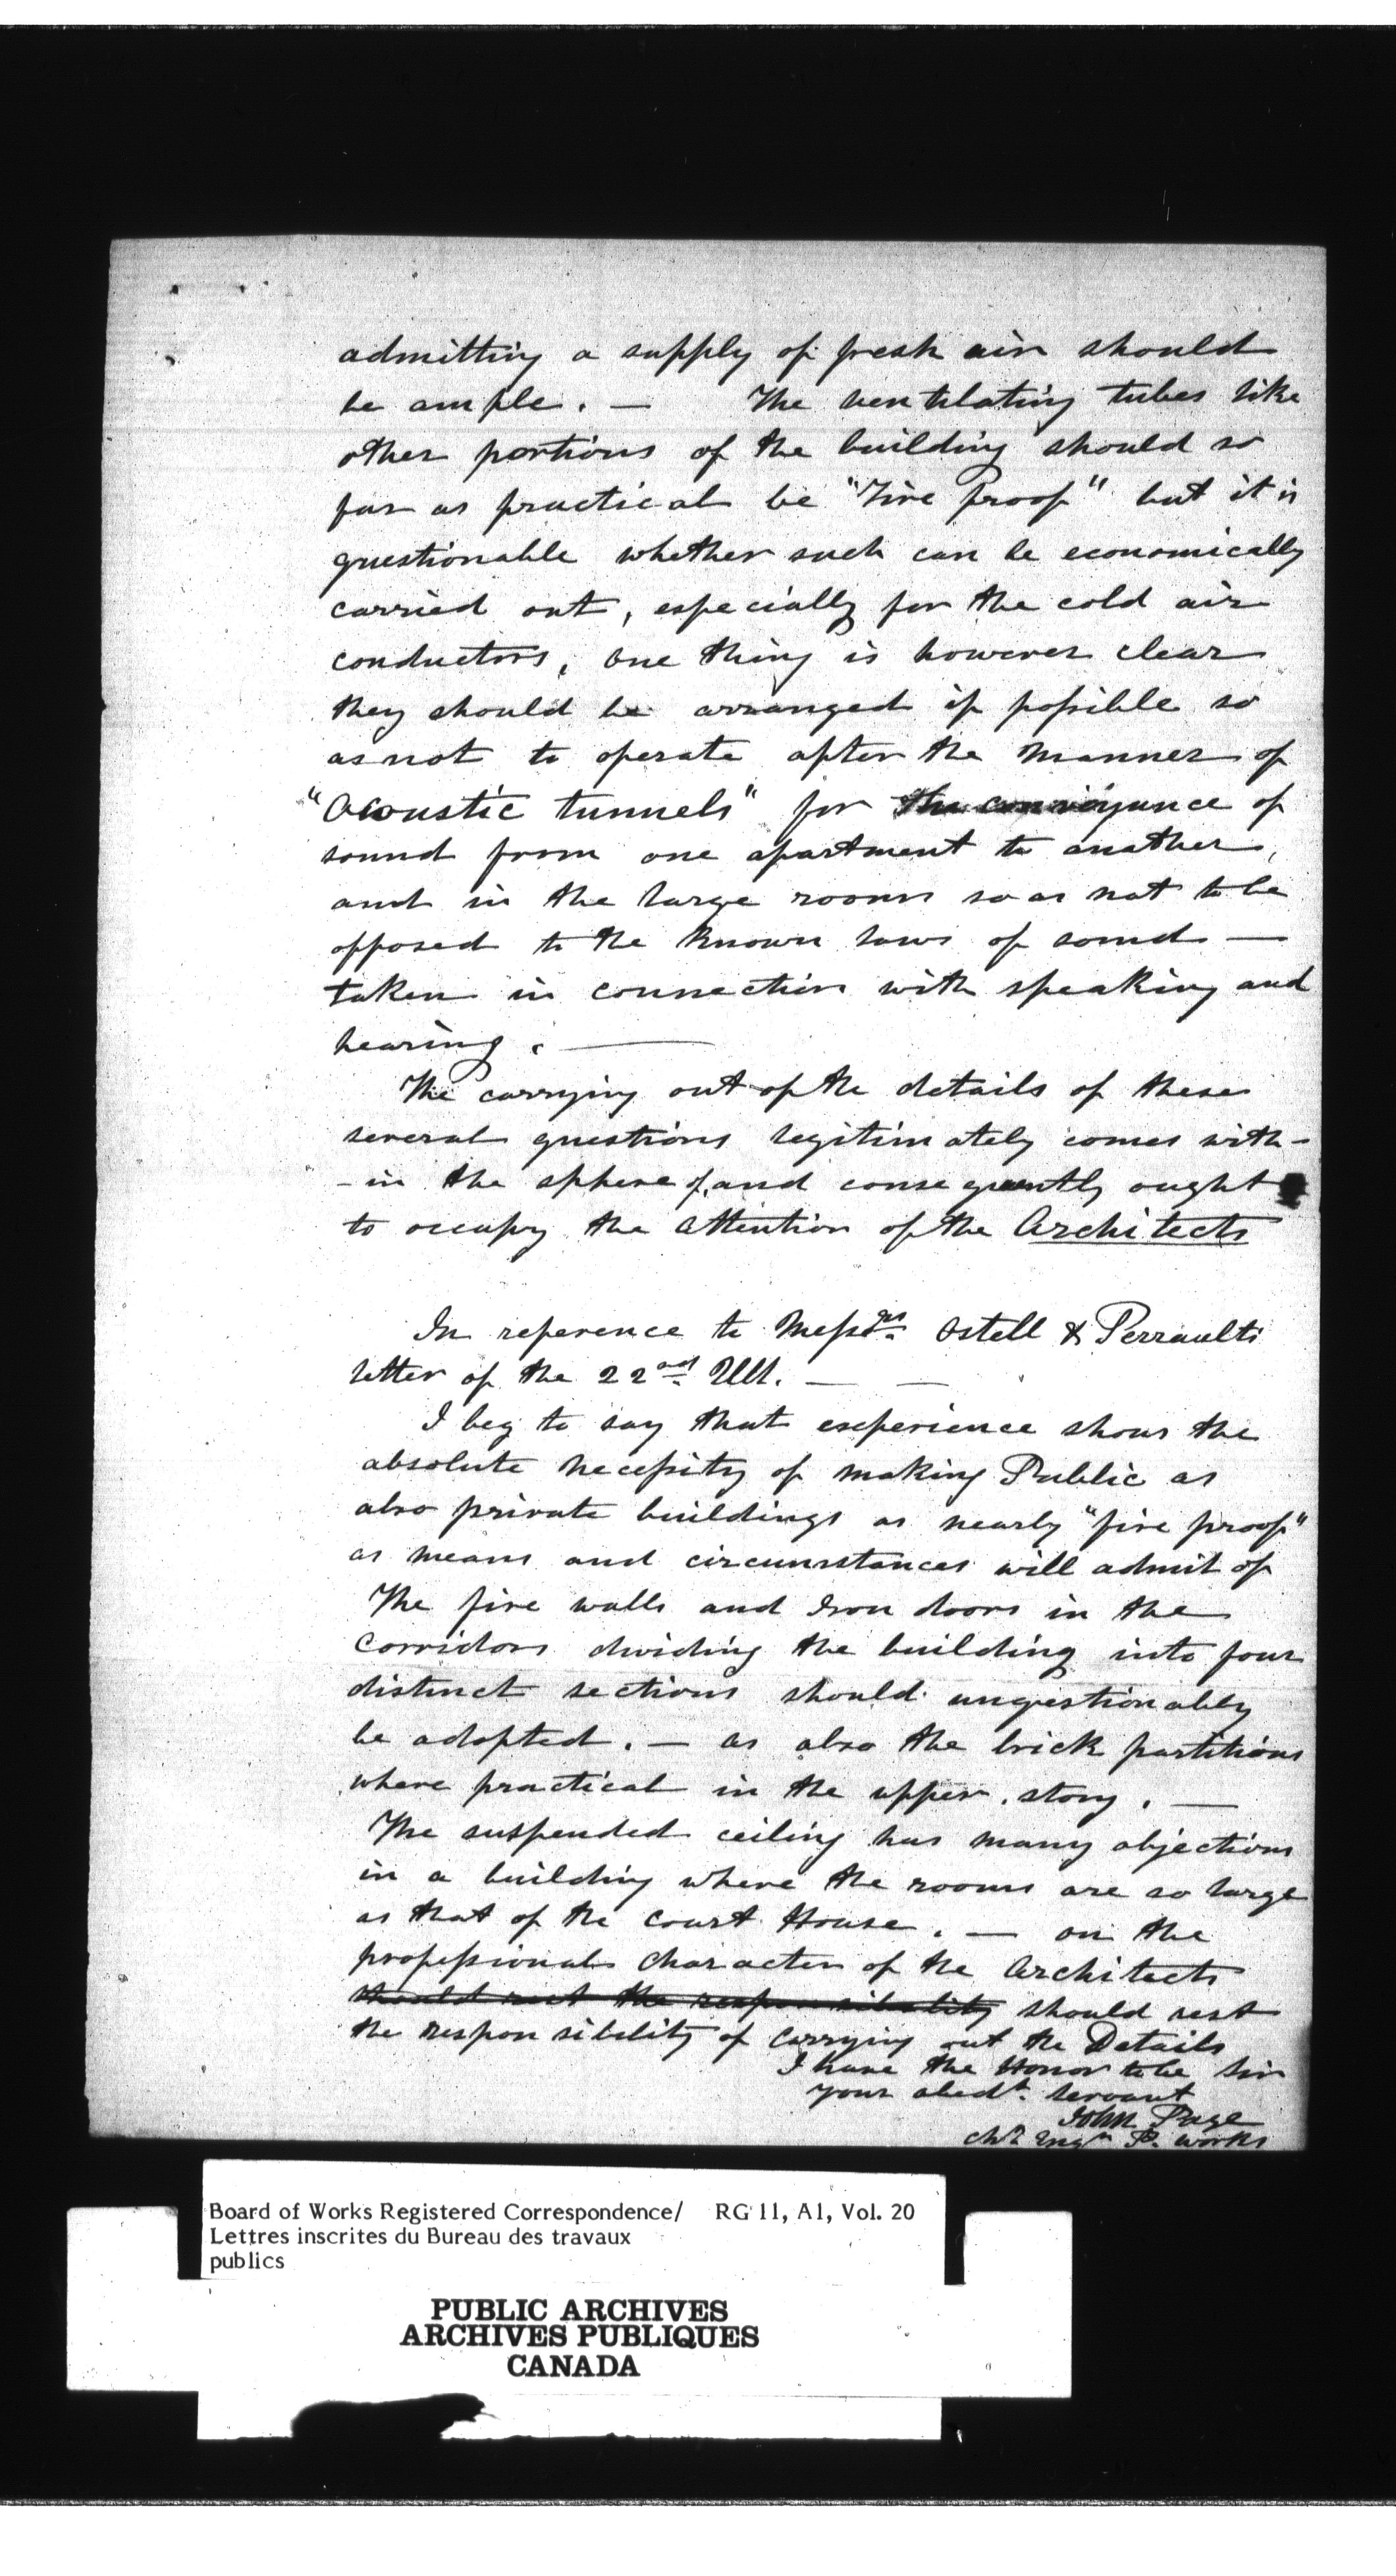 admitting a supply of fresh air should
be ample. — The ventilating tubes like
other portions of the building should so
far as practical be "Fire proof" but it is
questionable whether such can be economically
carried out, especially for the cold air
conductors, one thing is however clear
they should be arranged if possible so
as not to operate after the manner of
"Acoustic tunnels" for the conveyance of
sound from one apartment to another,
and in the large rooms so as not to be
opposed to the known laws of sound —
taken in connection with speaking and
hearing. —
The carrying out of the details of these
several questions legitimately comes with-
-in the sphere of, and consequently ought
to occupy the attention of the Architects
In reference to Messrs. Ostell & Perraults
letter of the 22nd Ult. — —
I beg to say that experience shows the
absolute necessity of making Public as
also private buildings as nearly "fire proof"
as means and circumstances will admit of
The fire walls and Iron doors in the
Corridors dividing the building into four
distinct sections should unquestionably
be adopted. — as also the brick partitions
where practical in the upper story. —
The suspended ceiling has many objections
in a building where the rooms are so large
as that of the Court House. — on the
professional character of the Architects
should rest the responsibility should rest
the responsibility of carrying out the Details
I have the Honor to be Sir
your obedt. servant
John Page
Chf. Engr. P. Works
Board of Works Registered Correspondence/ RG 11, A1, Vol. 20
Lettres inscrites du Bureau des travaux
publics
PUBLIC ARCHIVES
ARCHIVES PUBLIQUES
CANADA